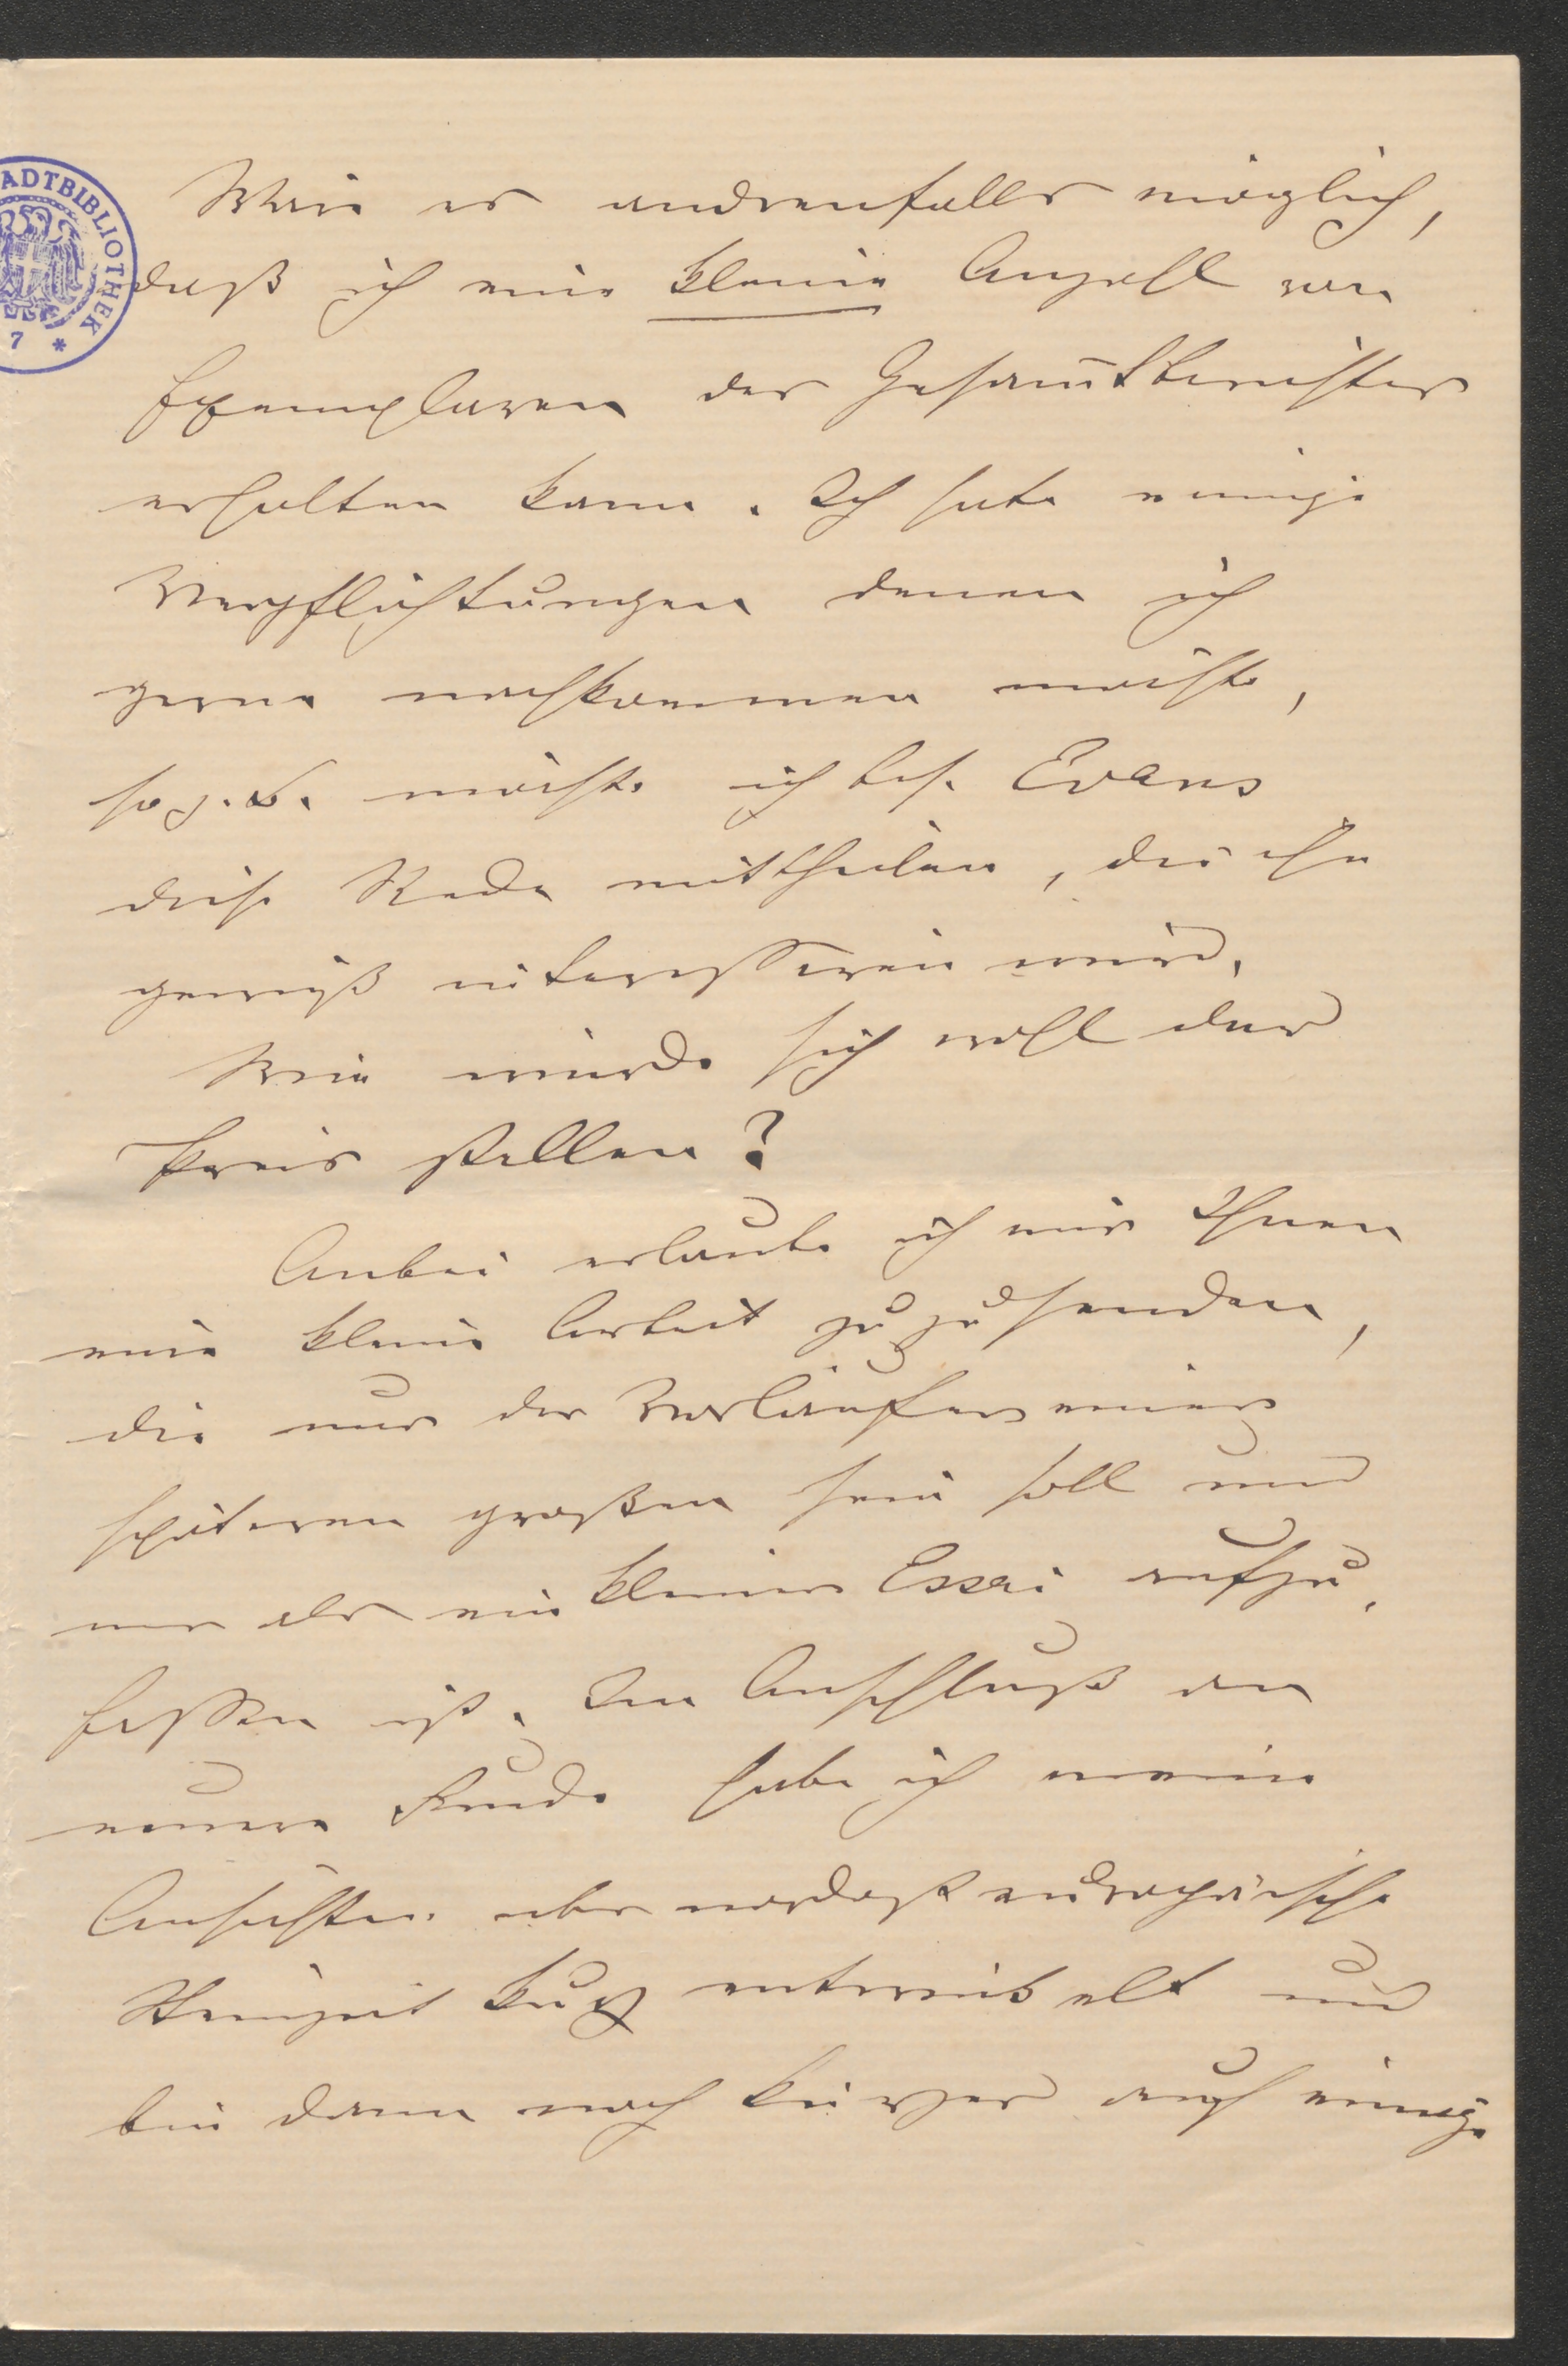 ADTBIBLIOTHEK
7 *
Wäre es andrenfalls möglich,
daß ich eine kleine Anzahl von
Exemplaren des Gesam̅tberichtes
erhalten kann. Ich habe einige
Verpflichtungen denen ich
gerne nachkommen möchte,
so z. B. möchte ich bes. Evans
diese Rede mittheilen, die ihn
gewiß interessieren wird.
Wie würde sich wohl der
Preis stellen?
Anbei erlaube ich mir Ihnen
eine kleine Arbeit zuzusenden,
die nur der Vorläufer einer
späteren großen sein soll und
nur als ein kleiner Essai aufzu-
fassen ist. Im Anschluß an
neuere Funde habe ich meine
Ansichten über nordosteuropäische
Steinzeit kurz entwickelt und
bin dann noch kürzer auf einige